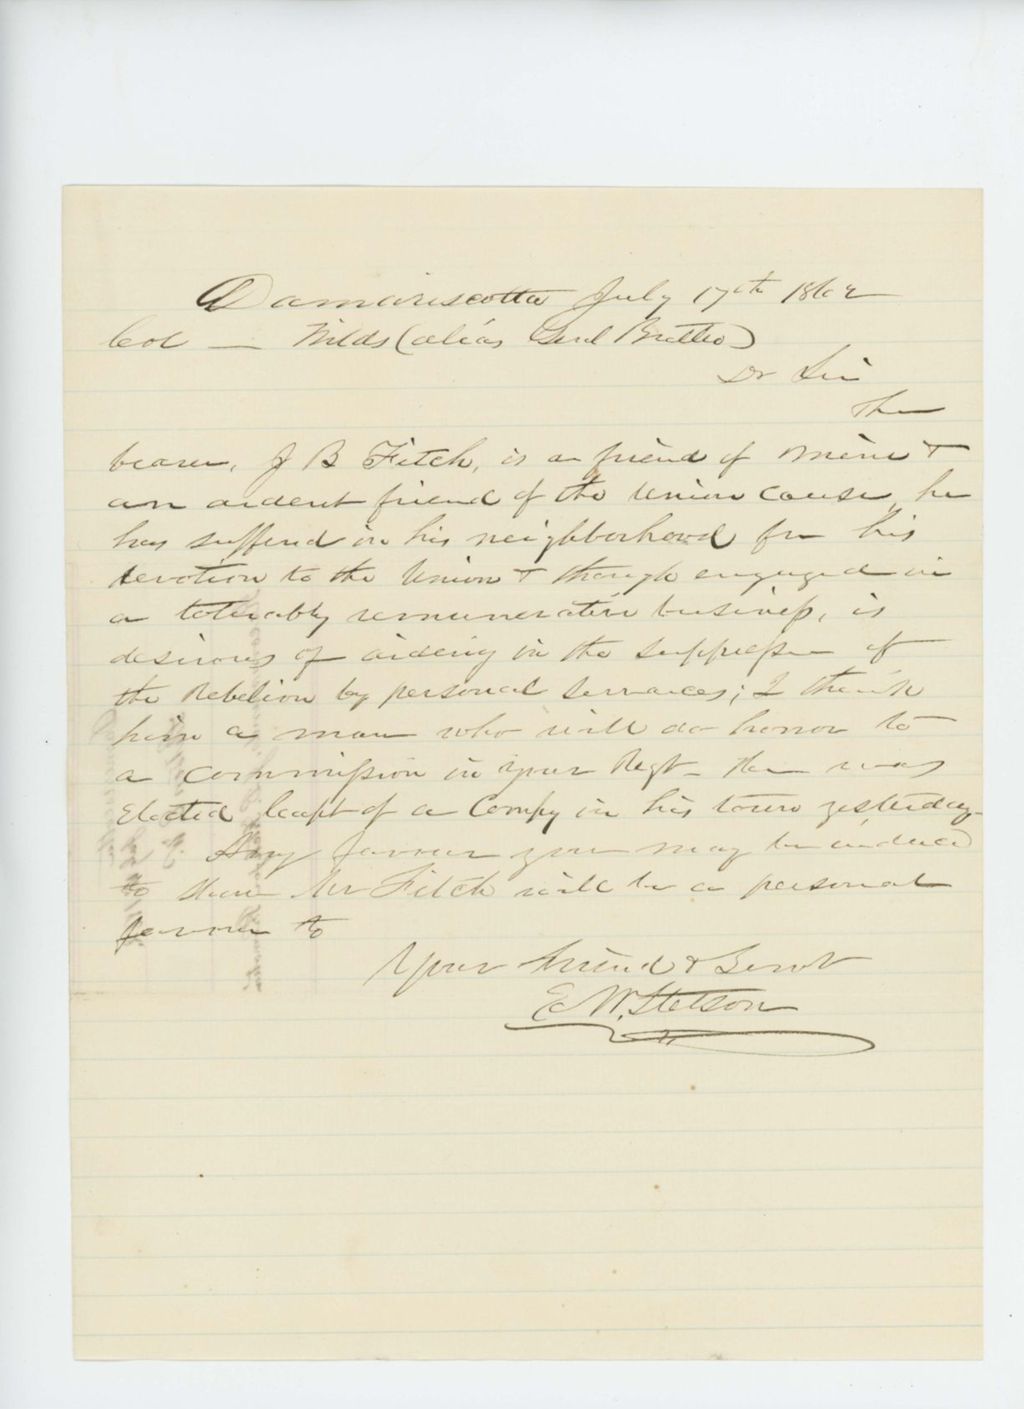 Damariscotta July 17th 1862
Col — Wilds (alias Genl Butler)
Dr Sir
The
bearer, J B Fitch, is a friend of mine &
an ardent friend of the Union cause, he
has sufferd in his neighborhood for his
devotion to the Union & though engaged in
a tolerably remunerative business, is
desirous of aiding in the suppression of
the Rebelion by personal servaces; I think
him a man who will do honor to
a commission in your Regt — He was
Elected Capt of a Compy in his town yesterday —
Any favour you may be induced
to shew Mr Fitch will be a personal
favour to
Your friend & Servt
E W. Stetson